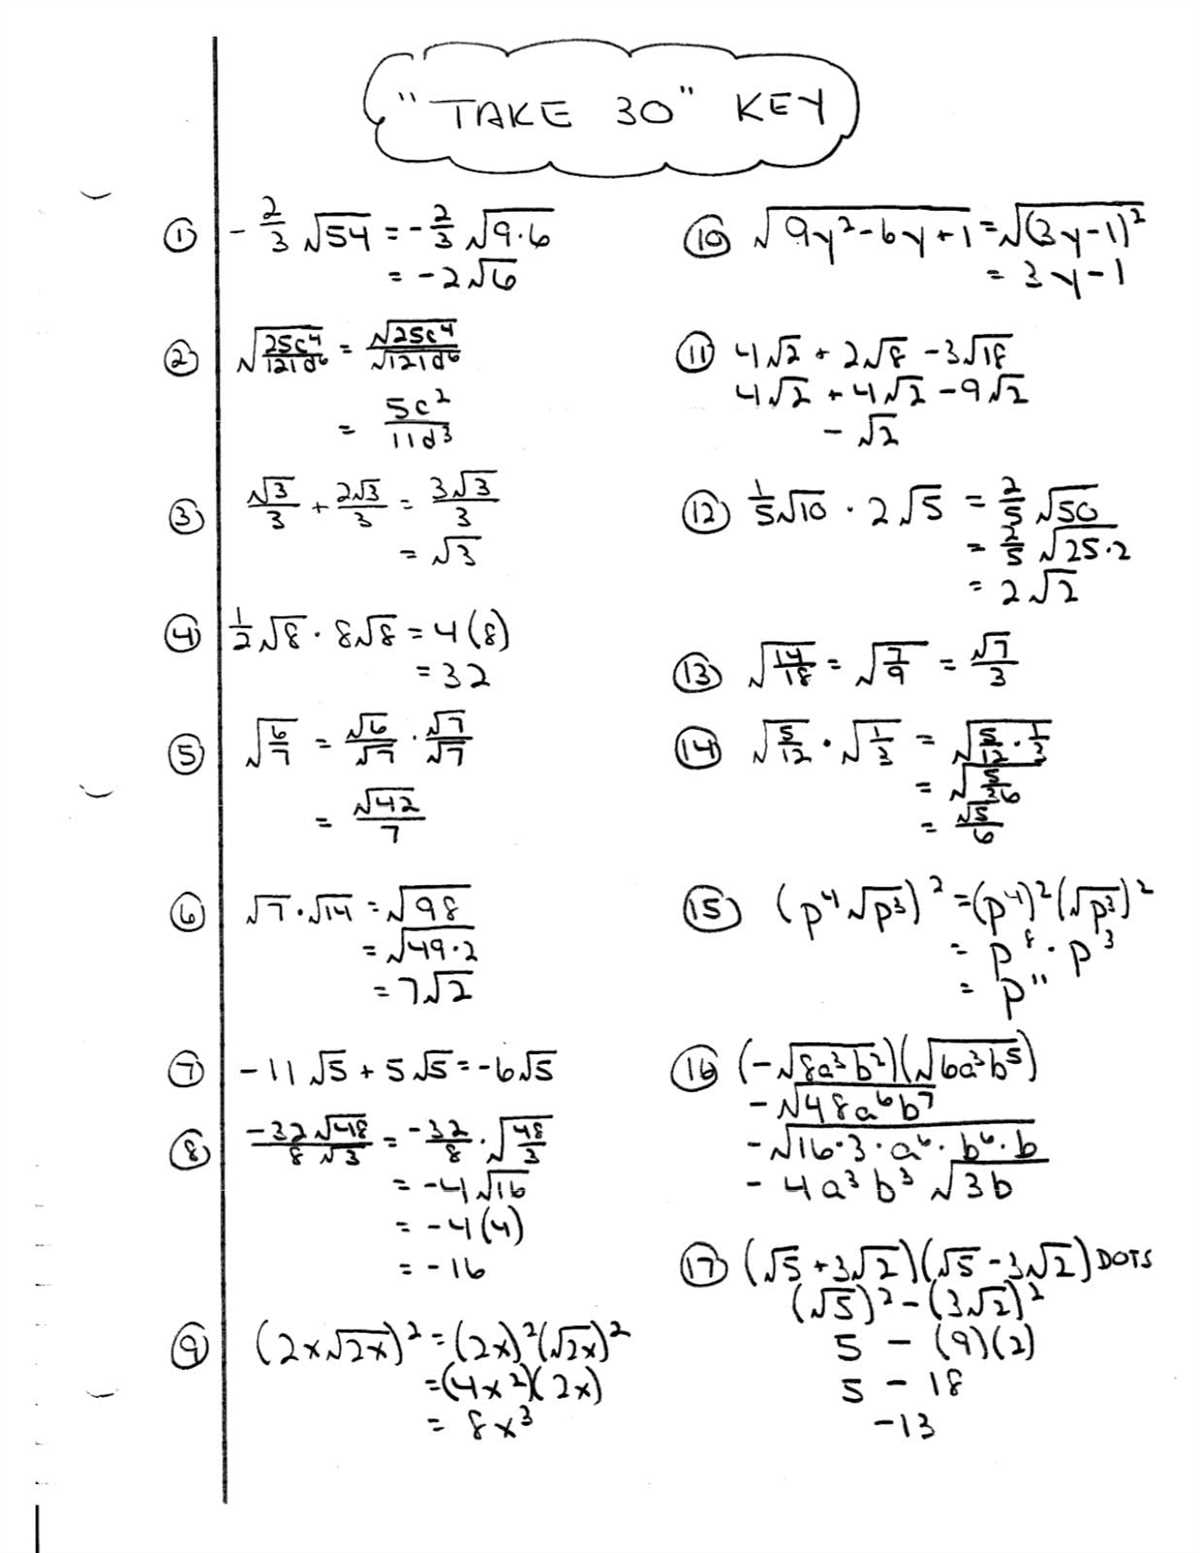 "TAKE 30" KEY
① -2/3 √54 = -2/3 √9·6
= -2√6
② √(25c⁴/121d⁶) = √25c⁴/√121d⁶
= 5c²/11d³
③ √3/3 + 2√3/3 = 3√3/3
= √3
④ 1/2 √8 · 8√8 = 4(8)
= 32
⑤ √(6/7) = √6/√7 · √7/√7
= √42/7
⑥ √7 · √14 = √98
= √49·2
= 7√2
⑦ -11√5 + 5√5 = -6√5
⑧ -32√48/8√3 = -32/8 · √(48/3)
= -4√16
= -4(4)
= -16
⑨ (2x√2x)² = (2x)²(√2x)²
= (4x²)(2x)
= 8x³
⑩ √(9y²-6y+1) = √(3y-1)²
= 3y-1
⑪ 4√2 + 2√8 - 3√18
4√2 + 4√2 - 9√2
- √2
⑫ 1/5 √10 · 2√5 = 2/5 √50
= 2/5 √25·2
= 2√2
⑬ √(14/18) = √(7/9) = √7/3
⑭ √(5/12) · √(1/3) = √(5/12 · 1/3)
= √(5/36)
= √5/6
⑮ (p⁴√p³)² = (p⁴)²(√p³)²
= p⁸ · p³
= p¹¹
⑯ (-√8a³b²)(√6a³b⁵)
-√48a⁶b⁷
-√16·3·a⁶·b⁶·b
-4a³b³√3b
⑰ (√5+3√2)(√5-3√2) DOTS
(√5)² - (3√2)²
5 - (9)(2)
5 - 18
-13